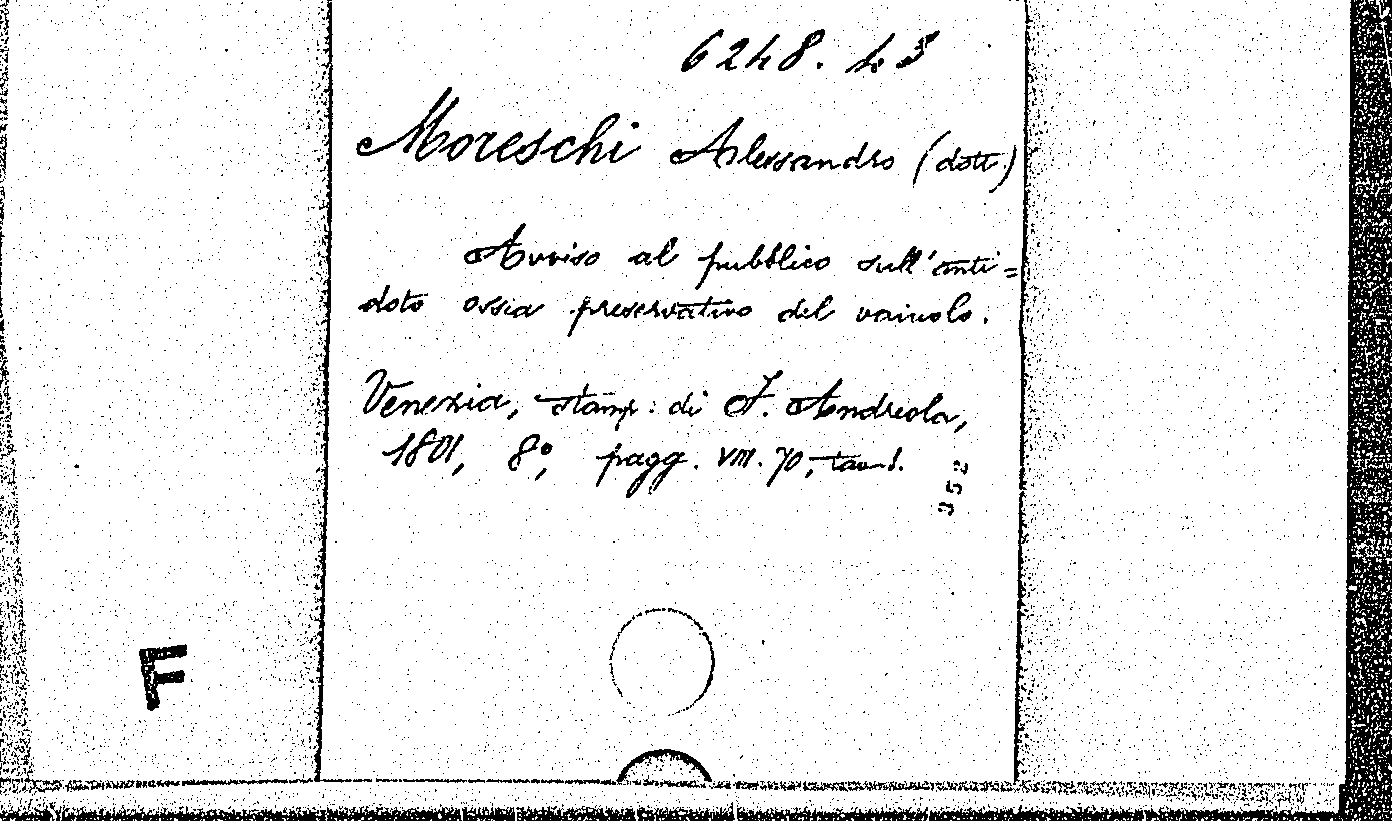 6248. b3
Moreschi Alessandro (dott.)
Avviso al pubblico sull'anti=
doto ossia preservativo del vaiuolo.
Venezia, stamp: di F. Andreola,
1801, 8°, pagg. VIII. 70, tav. 1.
352
F